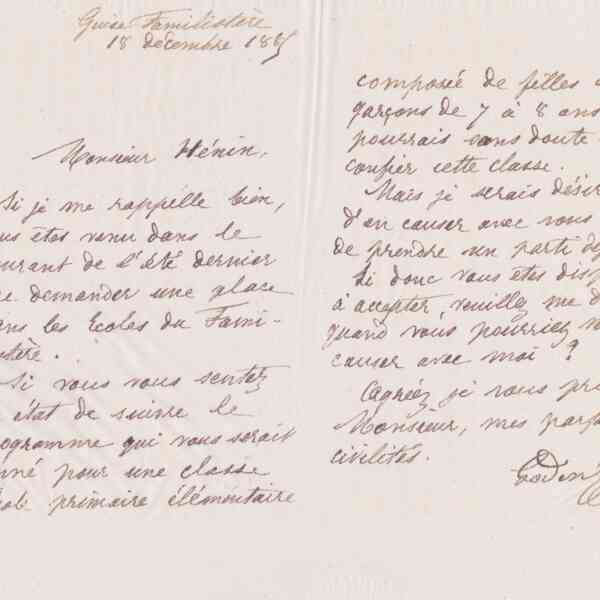 Guise Familistère
18 décembre 188
Monsieur Hénin,
Si je me rappelle bien,
ous êtes venu dans le
ourant de l'été dernier
e demander une place
ans les Ecoles du Fami-
stère.
Si vous vous sentez
état de suivre le
rogramme qui vous serait
nné pour une classe
ole primaire élémentaire
composé de filles
garçons de 7 à 8 ans
pourrais sans doute
confier cette classe.
Mais je serais désir
d'en causer avec vous
de prendre un parti dé
Si donc vous êtes disp
à accepter, veuillez me d
quand vous pourriez v
causer avec moi ?
Agréez je vous pri
Monsieur, mes parf
civilités.
Godin